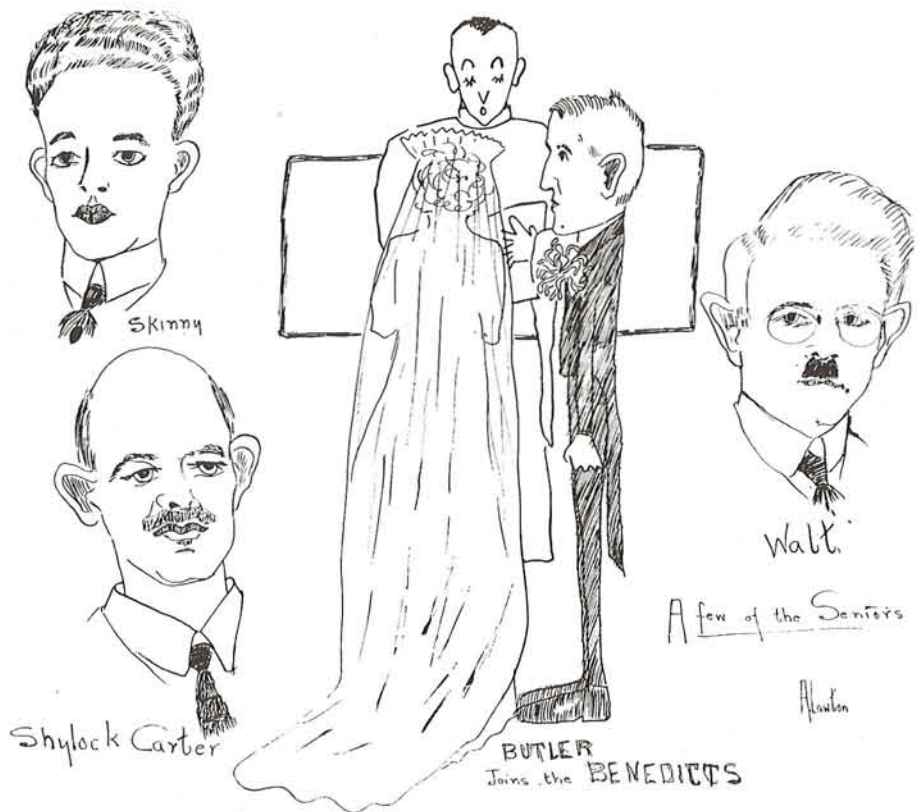 Skinny
Shylock Carter
BUTLER
Joins the BENEDICTS
Walt.
A few of the Seniors
ALawton